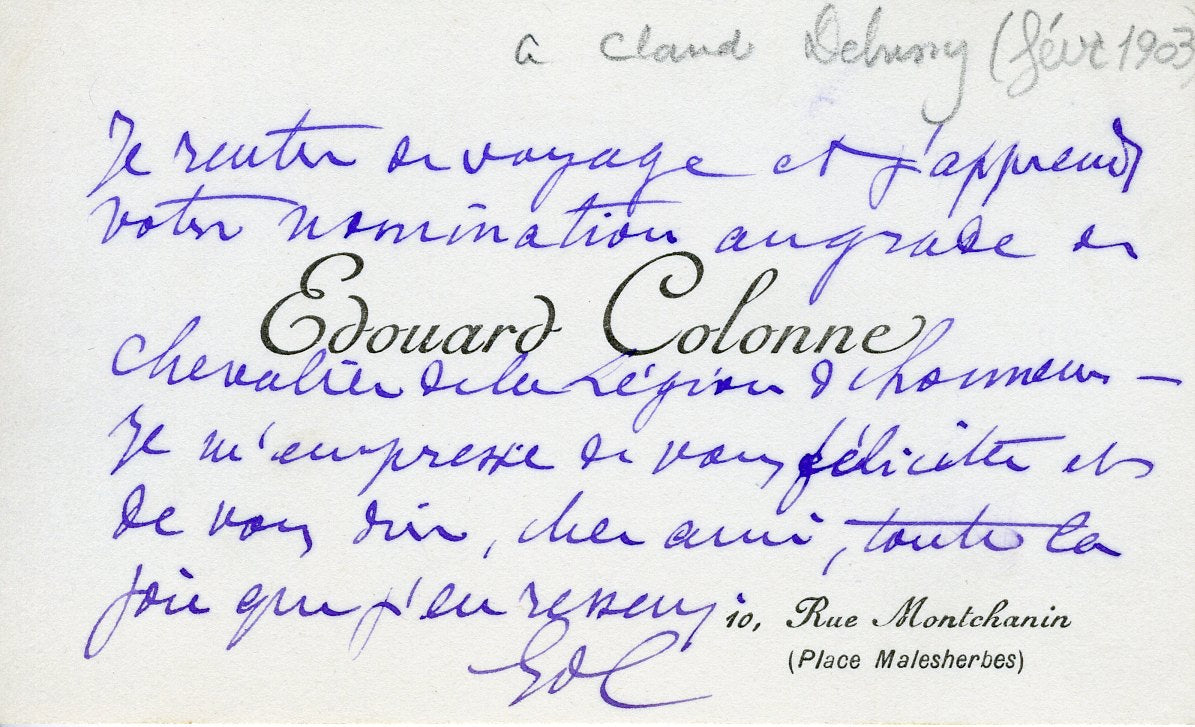 a Claud Debussy (févr 1903)
Je rentre de voyage et j'apprends
votre nomination au grade de
Edouard Colonne
chevalier de la Légion d'honneur —
Je m'empresse de vous féliciter et
de vous dire, cher ami, toute la
joie que j'en ressens.
10, Rue Montchanin
(Place Malesherbes)
EdC